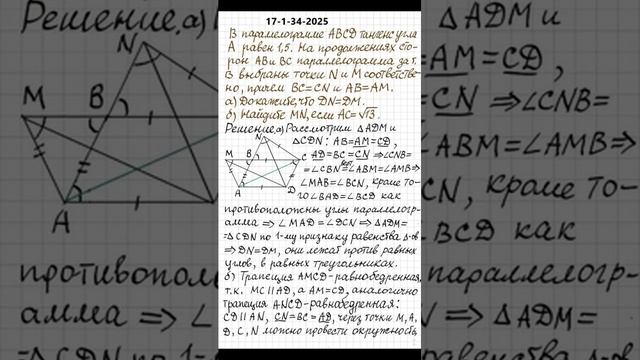 17-1-34-2025
В параллелограмме ABCD тангенс угла
A равен 1,5. На продолжениях сто-
рон AB и BC параллелограмма за т.
B выбраны точки N и M соответствен-
но, причем BC=CN и AB=AM.
а) Докажите, что DN=DM.
б) Найдите MN, если AC=√13.
Решение, а) Рассмотрим △ADM и
△CDN: AB=AM=CD,
AD=BC=CN ⇒ ∠CNB=
=∠CBN верт =∠ABM=∠AMB ⇒
∠MAB=∠BCN, кроме то-
го ∠BAD=∠BCD как
противоположны углы параллелогр-
амма ⇒ ∠MAD=∠DCN ⇒ △ADM=
=△CDN по 1-му признаку равенства Δ-ов
⇒ DN=DM, они лежат против равных
углов, в равных треугольниках.
б) Трапеция AMCD-равнобедренная,
т.к. MC∥AD, а AM=CD, аналогично
трапеция ANCD-равнобедренная:
CD∥AN, CN=BC=AD, через точки M, A,
D, C, N можно провести окружность,
N
M
B
C
A
D
Решение, а)
N
M
B
A
противопол
амма ⇒ ∠
=△CDN по 1-
△ADM и
=AM=CD,
CN ⇒ ∠CNB=
ABM=∠AMB ⇒
BCN, кроме то-
BCD как
параллелогр-
⇒ △ADM=